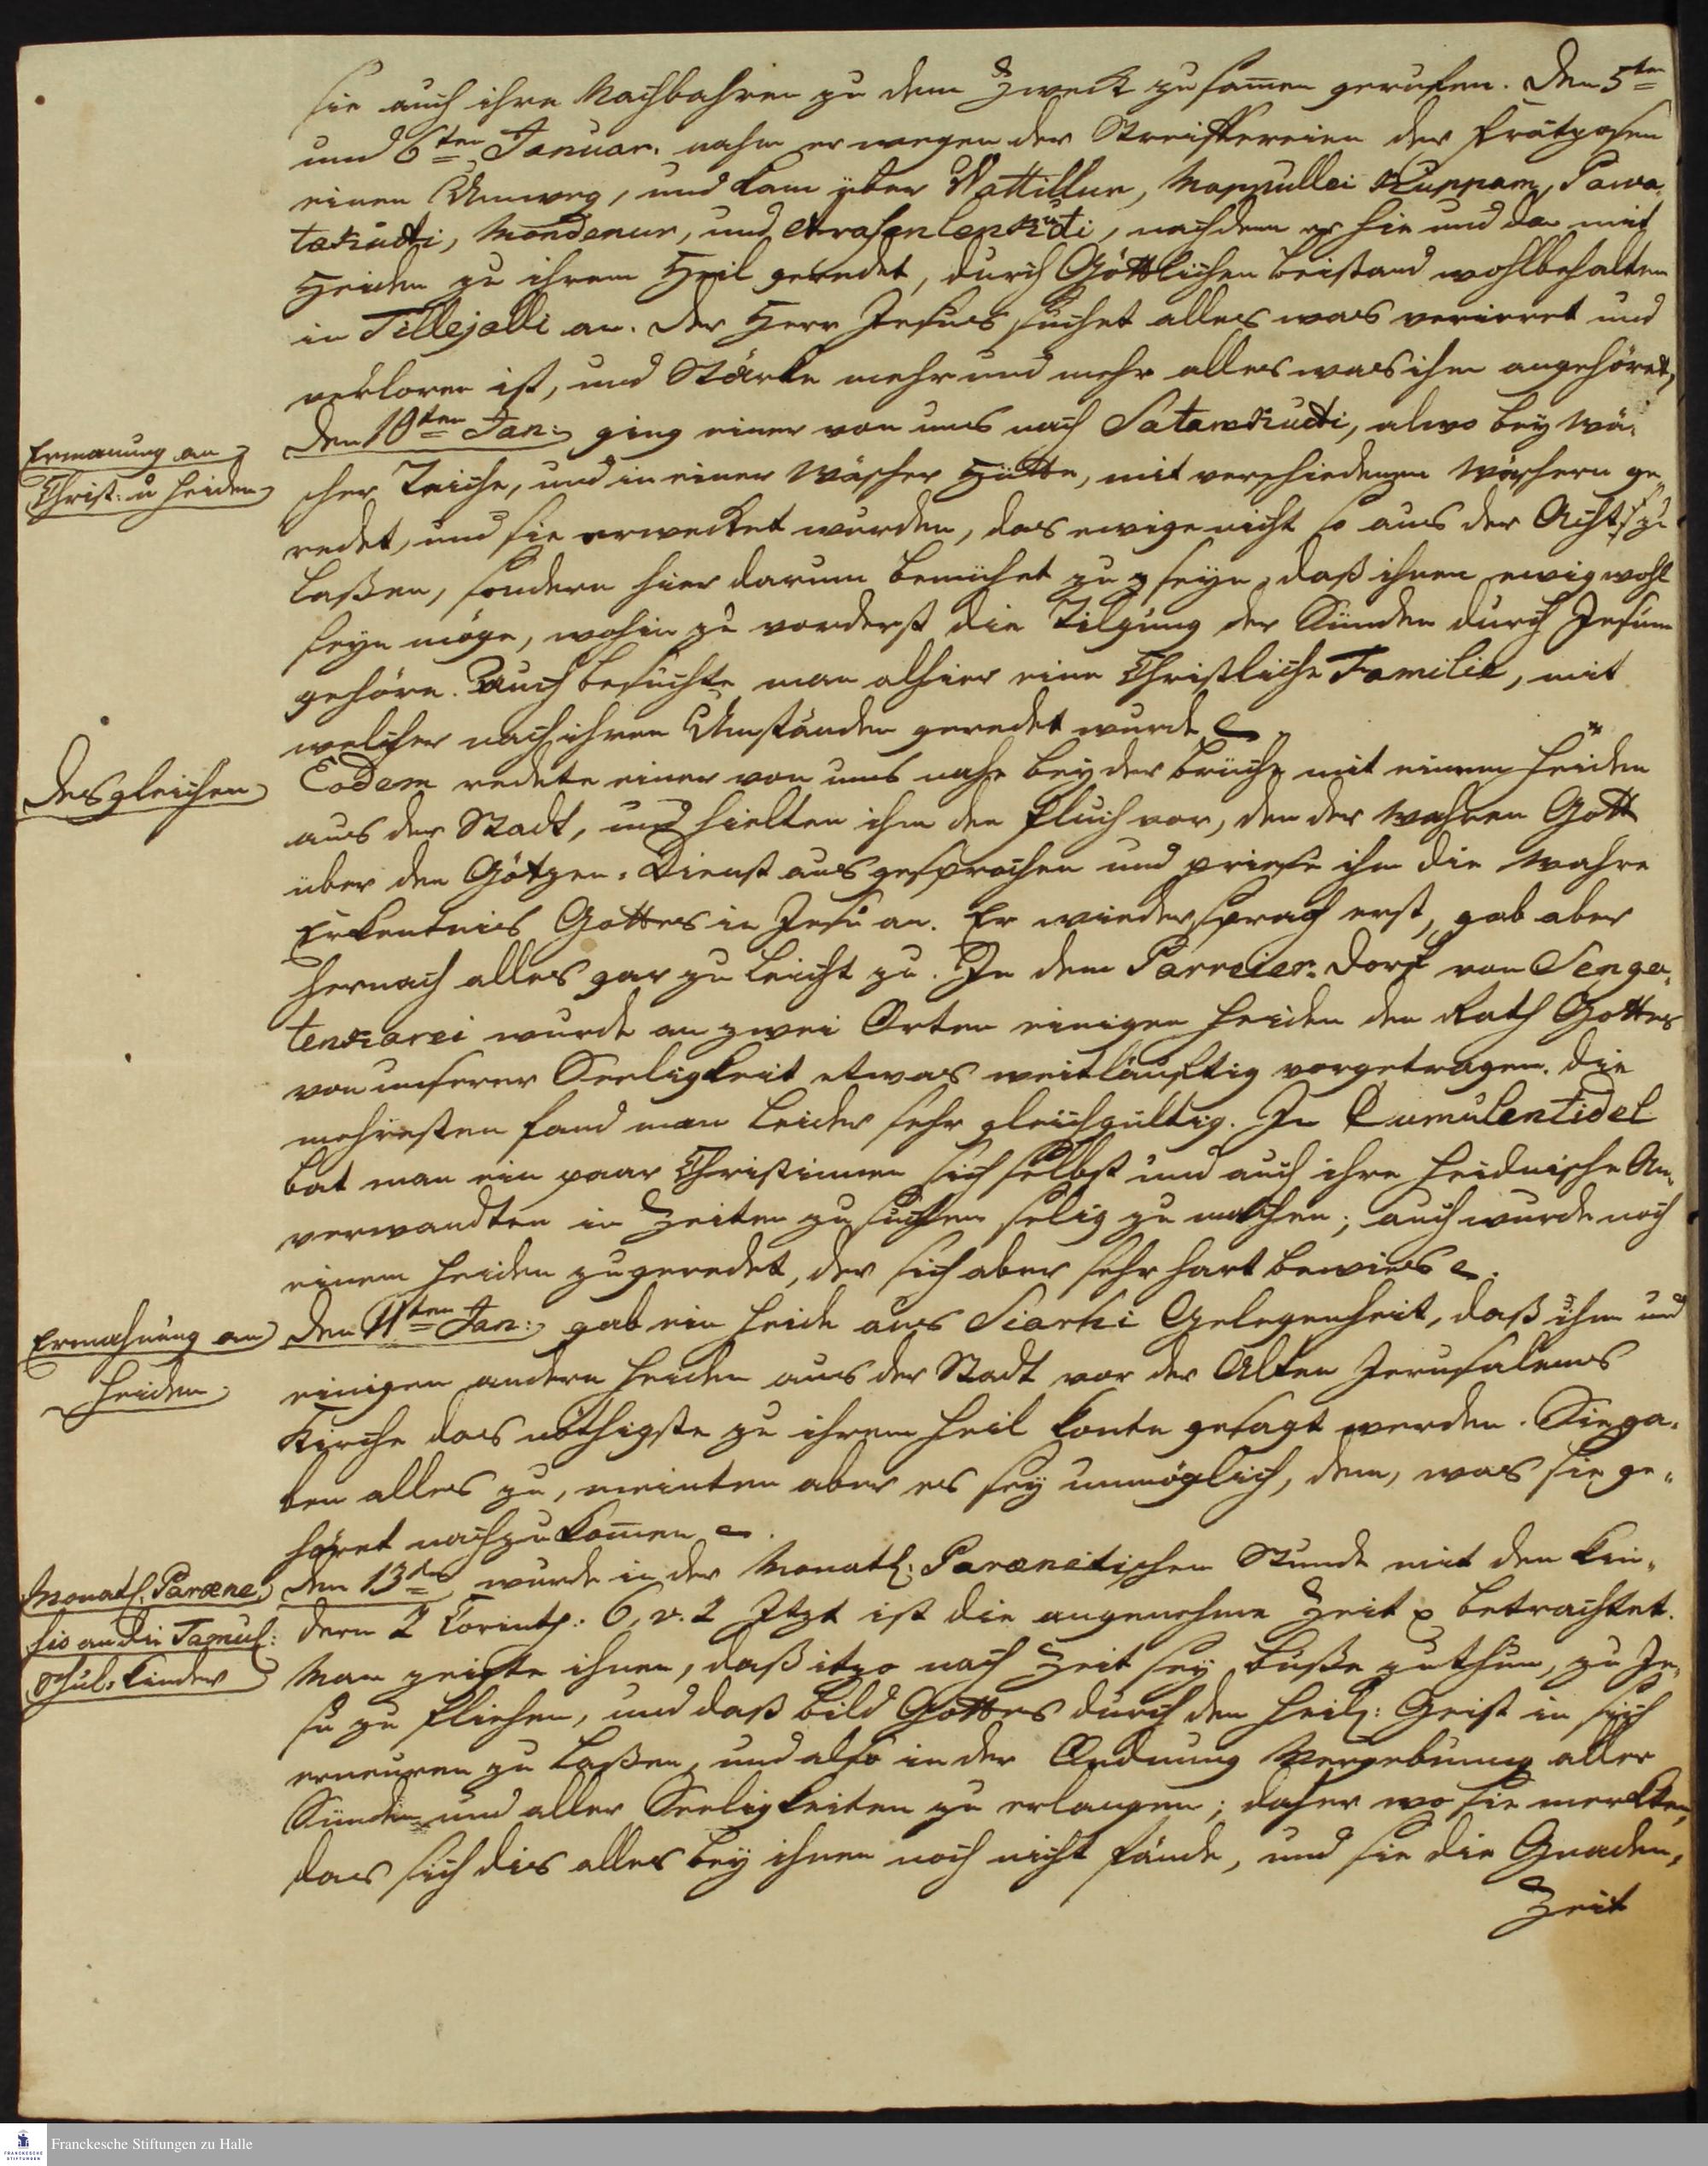 sie auch ihre Nachbahren zu dem Zweck zusam̄en gerufen. Den 5ten
und 6ten Januar. nahm er wegen der Streiffereien der Frantzosen
einen Umweg, und kam über Nattillur, Mappullei Kuppam, Pawa-
takudti, Mandenur, und Arasenlenkudti, nachdem er hie und da mit
Heiden zu ihrem Heil geredet, durch Göttlichen beistand wohlbehalten
in Tillejalli an. Der Herr Jesus suchet alles was verirret und
verloren ist, und Stärke mehr und mehr alles was ihm angehöret,
Ermanung an
Christ: u Heiden
Den 10ten Jan: ging einer von uns nach Satankudti, alwo bey Wä-
scher Teiche, und in einer Wäscher Hütte, mit verschiedenen Wäschern ge-
redet, und sie erwecket wurden, das ewige nicht so aus der Acht zu
laßen, sondern hier darum bemühet zu seyn, daß ihnen ewig wohl
seyn möge, wohin zu vorderst die Tilgung der Sünden durch Jesum
gehöre. Auch besuchte man alhier eine Christliche Familie, mit
welcher nach ihren Umständen geredet wurde
Desgleichen
Eodem redete einer von uns nahe bey der brücke mit einem Heiden
aus der Stadt, und hielten ihm den Fluch vor, den der Wahren Gott
über den Götzen-Dienst ausgesprochen und priese ihm die Wahre
Erkentnis Gottes in Jesu an. Er wieder sprach erst, gab aber
hernach alles gar zu leicht zu. In dem Parreier-Dorf von Senga-
tenkarei wurde an zwei Orten einigen Heiden den Rath Gottes
von unserer Seeligkeit etwas weitläuftig vorgetragen. Die
mehresten fand man leider sehr gleichgültig. In Cumulentidel
bat man ein paar Christinnen sich selbst und auch ihre heidnische An-
verwandten in Zeiten zu suchen selig zu machen; auch wurde noch
einem Heiden zugeredet, der sich aber sehr hart bewies
Ermahnung an
Heiden
Den 11ten Jan: gab ein Heide aus Siarki Gelegenheit, daß ihm und
einigen andern Heiden aus der Stadt vor der Alten Jerusalems
Kirche das nöthigste zu ihrem Heil konte gesagt werden. Sie ga-
ben alles zu, meinten aber es sey unmöglich, dem, was sie ge-
höret nachzukom̄en
Monatl. Paræne-
sis an die Tamul:
schul-Kinder
Den 13ten wurde in der Monatl: Parænetischen Stunde mit den Kin-
dern 2 Corinth: 6, v. 2 Itzt ist die angenehme Zeit betrachtet.
Man zeigte ihnen, daß itzo noch Zeit sey, buße zu thun, zu Je-
su zu fliehen, und daß bild Gottes durch den heil: Geist in sich
erneuren zu laßen, und also in der Ordnung Vergebung aller
Sünden und aller Seeligkeiten zu erlangen; daher wo sie merkten,
das sich dis alles bey ihnen noch nicht fände, und sie die Gnaden-
Zeit
FRANCKESCHE STIFTUNGEN
Franckesche Stiftungen zu Halle